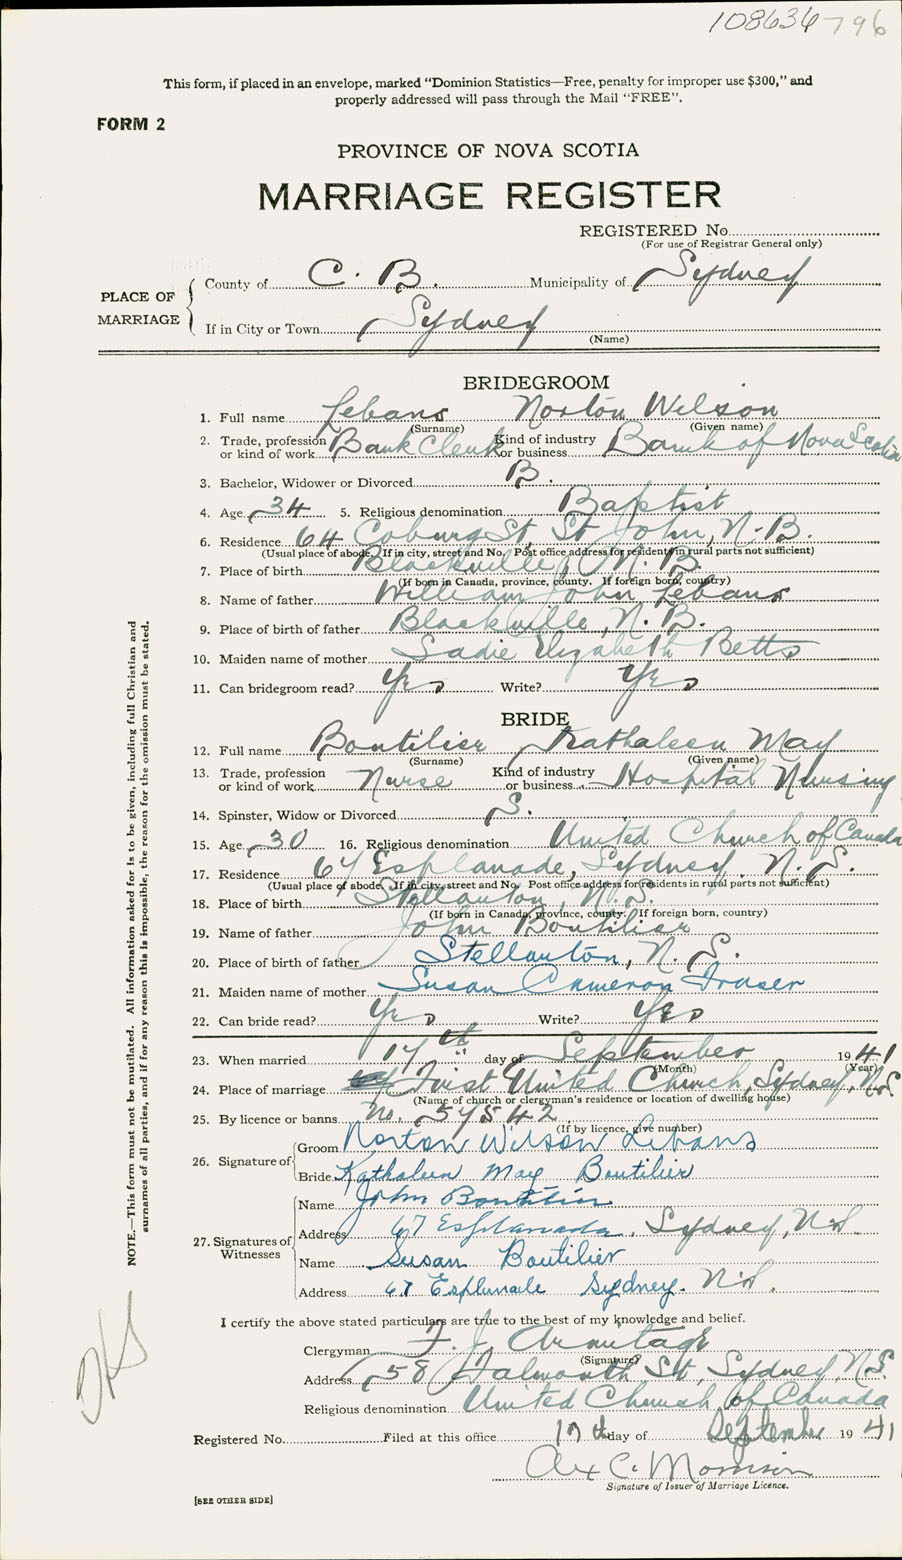 108636 796
This form, if placed in an envelope, marked "Dominion Statistics—Free, penalty for improper use $300," and
properly addressed will pass through the Mail "FREE".
FORM 2
PROVINCE OF NOVA SCOTIA
MARRIAGE REGISTER
REGISTERED No.
(For use of Registrar General only)
PLACE OF MARRIAGE
County of C. B. Municipality of Sydney
If in City or Town Sydney
(Name)
BRIDEGROOM
1. Full name Lebans Norton Wilson
(Surname) (Given name)
2. Trade, profession or kind of work Bank Clerk Kind of industry or business Bank of Nova Scotia
3. Bachelor, Widower or Divorced B.
4. Age 34 5. Religious denomination Baptist
6. Residence 64 Coburg St, St John, N.B.
(Usual place of abode. If in city, street and No. Post office address for residents in rural parts not sufficient)
7. Place of birth Blackville, N. B.
(If born in Canada, province, county. If foreign born, country)
8. Name of father William John Lebans
9. Place of birth of father Blackville, N. B.
10. Maiden name of mother Sadie Elizabeth Betts
11. Can bridegroom read? Yes Write? Yes
BRIDE
12. Full name Boutilier Kathaleen May
(Surname) (Given name)
13. Trade, profession or kind of work Nurse Kind of industry or business Hospital Nursing
14. Spinster, Widow or Divorced S.
15. Age 30 16. Religious denomination United Church of Canada
17. Residence 67 Esplanade, Sydney, N. S.
(Usual place of abode. If in city, street and No. Post office address for residents in rural parts not sufficient)
18. Place of birth Stellarton, N. S.
(If born in Canada, province, county. If foreign born, country)
19. Name of father John Boutilier
20. Place of birth of father Stellarton, N. S.
21. Maiden name of mother Susan Cameron Fraser
22. Can bride read? Yes Write? Yes
23. When married 17th day of September 1941
(Month) (Year)
24. Place of marriage First United Church, Sydney, N.S.
(Name of church or clergyman's residence or location of dwelling house)
25. By licence or banns No. 57542
(If by licence, give number)
26. Signature of
Groom Norton Wilson Lebans
Bride Kathaleen May Boutilier
27. Signatures of Witnesses
Name John Boutilier
Address 67 Esplanade, Sydney, N.S.
Name Susan Boutilier
Address 67 Esplanade Sydney. N.S.
I certify the above stated particulars are true to the best of my knowledge and belief.
Clergyman F. J. Armitage
(Signature)
Address 58 Falmouth St, Sydney, N.S.
Religious denomination United Church of Canada
Registered No. Filed at this office 17th day of September 1941
Alex C. Morrison
Signature of Issuer of Marriage Licence.
[SEE OTHER SIDE]
NOTE.—This form must not be mutilated. All information asked for is to be given, including full Christian and
surnames of all parties, and if for any reason this is impossible, the reason for the omission must be stated.